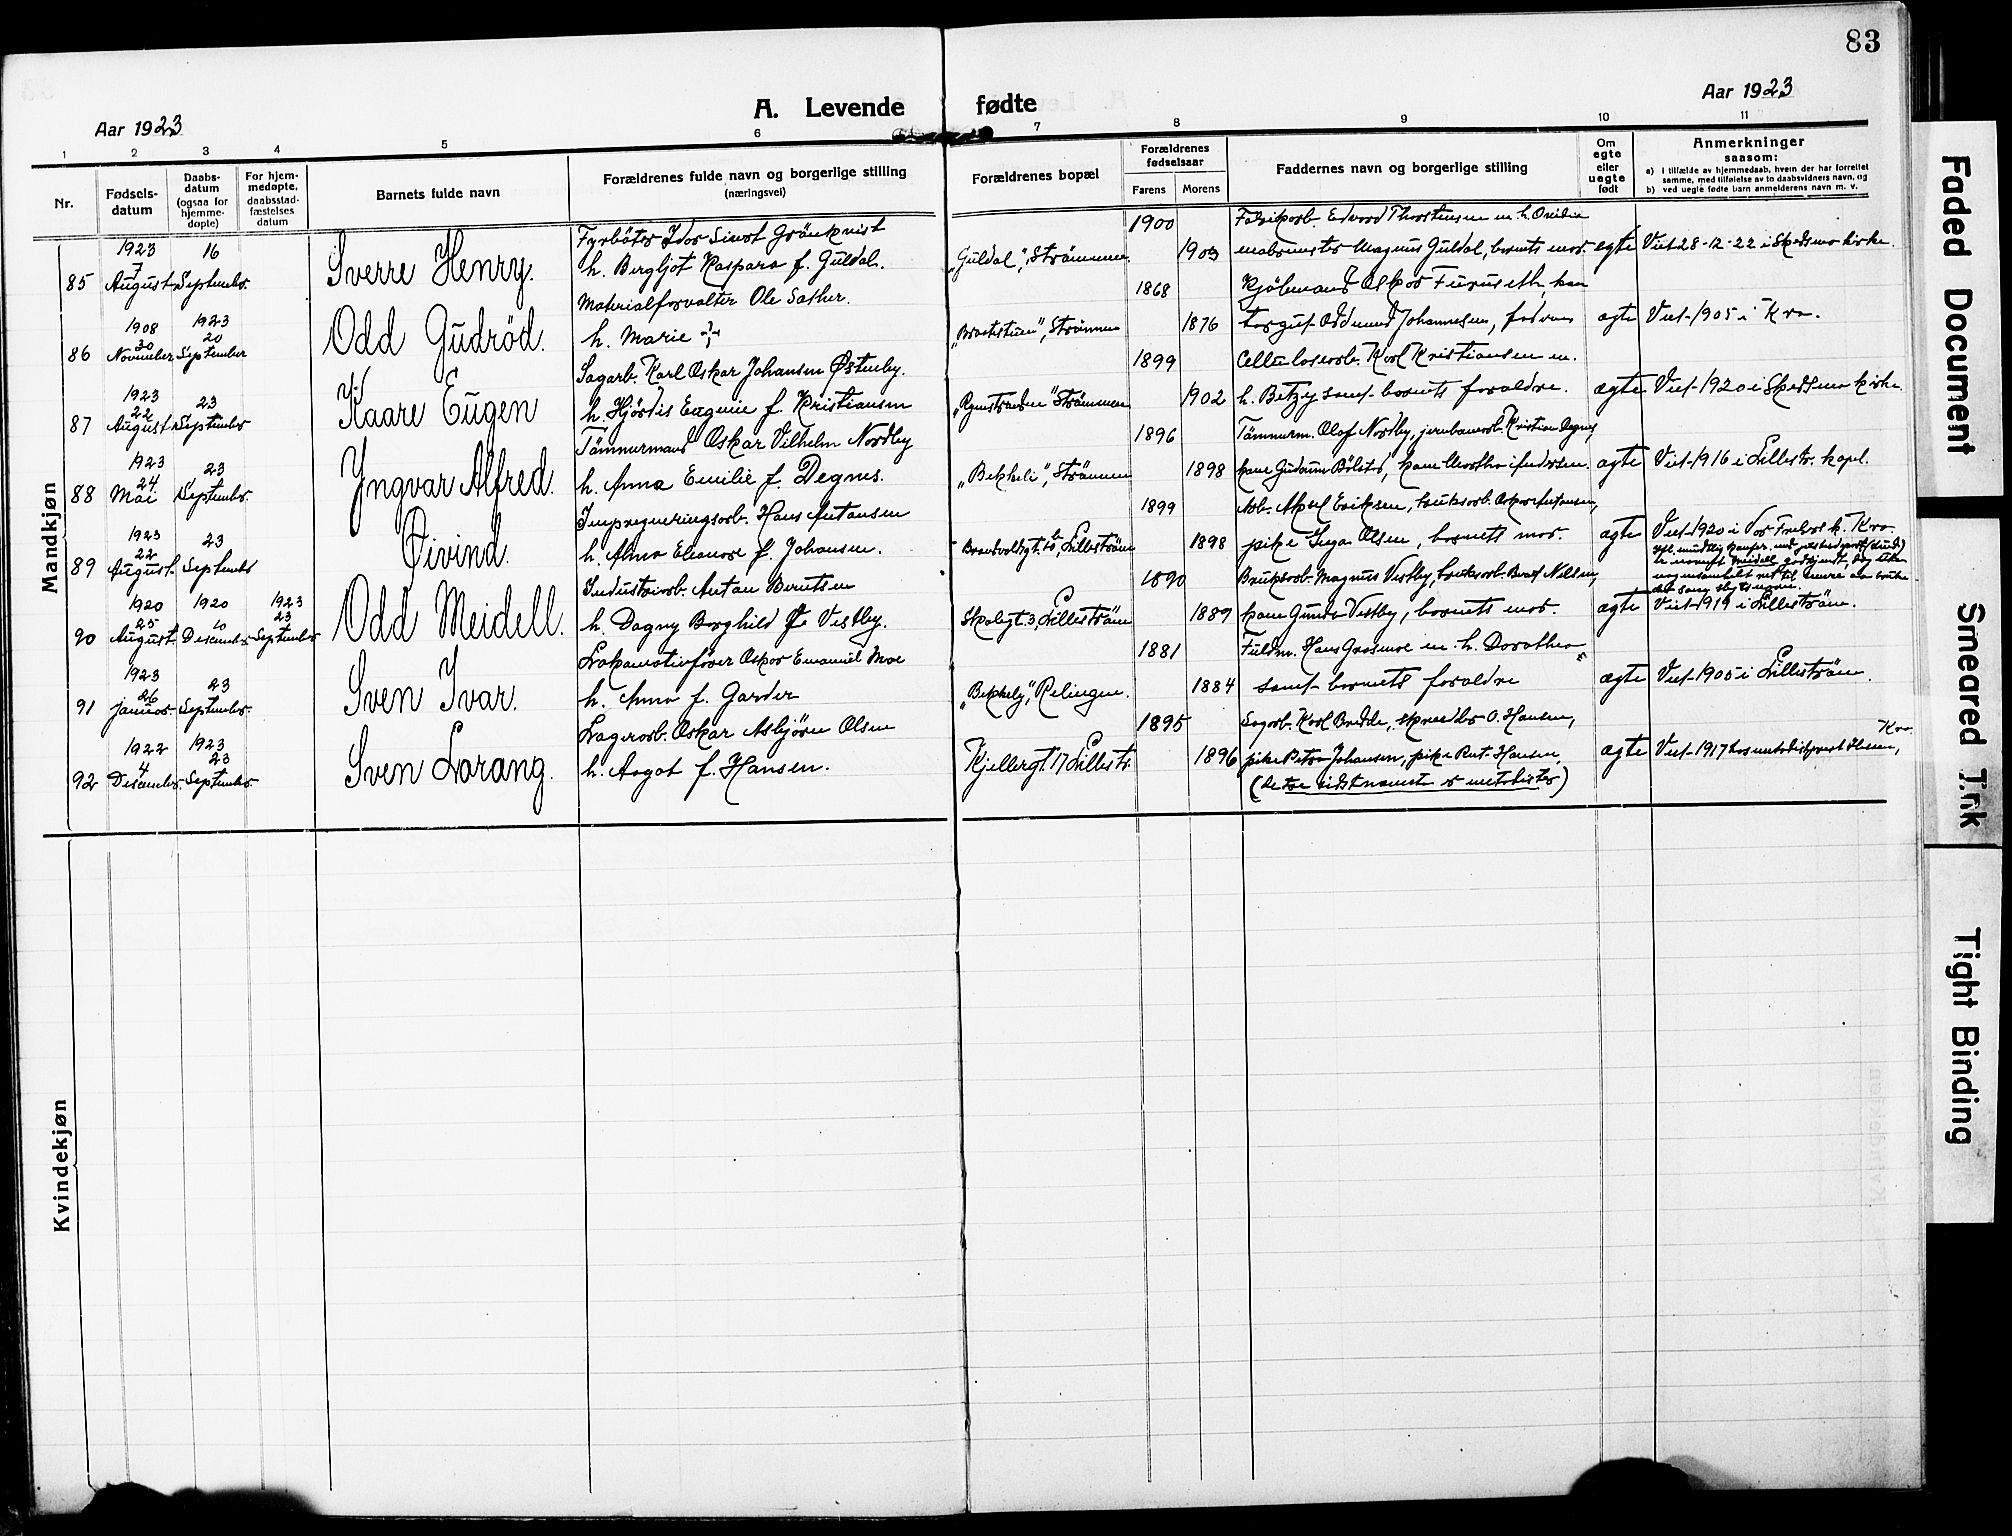 83
Aar 1923
A. Levende fødte
Aar 1923
1 2 3 4 5 6 7 8 9 10 11
Nr.
Fødsels-
datum
Daabs-
datum
(ogsaa for
hjemme-
døpte)
For hjem-
medøpte,
daabsstad-
fæstelses
datum
Barnets fulde navn
Forældrenes fulde navn og borgerlige stilling
(næringsvei)
Forældrenes bopæl
Forældrenes
fødselsaar
Farens Morens
Faddernes navn og borgerlige stilling
Om
egte
eller
uegte
født
Anmerkninger
saasom:
a) i tilfælde av hjemmedaab, hvem der har forrettet
samme, med tilføielse av to daabsvidners navn, og
b) ved uegte fødte barn anmelderens navn m. v.
Mandkjøn
1923 16 Fyrböter Idor Grönkvist 1900 Edvard Thorstensen m. h.
85 7 August September Sverre Henry. h. Bergljot Kaspara f. Guldal. "Guldal", Strömmen. 1903 Magnus Guldal, barnets mor. egte Viet 28-12-22 i Skedsmo kirke.
1908 1923 Materialforvalter Ole Sæther. 1868 Kjöbmand Oskar Furuseth,
86 30 November 20 September Odd Gudröd. h. Marie Strömmen 1876 Oddmund Johannesen, egte Viet 1905 i Kra.
1923 Sagarb. Karl Oskar Johansen Østenby. 1899 Cellulosearb. Karl Kristiansen m.
87 22 August 23 September Kaare Eugen h. Hjördis Eugenie f. Kristiansen Strömmen 1902 h. Betzy samt barnets forældre. egte Viet 1920 i Skedsmo kirke
1923 Tömmermand Oskar Vilhelm Nordby 1896 Tömmerm. Olaf Nordby, jernbanearb. Kristian Degnes,
88 24 Mai 23 September. Yngvar Alfred. h. Anna Emilie f. Degnes. "Bekkeli", Strömmen 1898 kone Gudrun Bölstad, kone Martha Andersen. egte Viet 1916 i Lillestr. kapel.
1923 Impregneringsarb. Hans Antonsen 1899 Arb. Aksel Eriksen, bruksarb. Oskar Antonsen,
89 22 August. 23 September Öivind. h. Alma Eleonora f. Johansen. Lilleström 1898 pike Inga Olsen, barnets mor. egte Viet 1920 i Vor Frelsers k. Kra.
1920 1920 1923 Industriarb. Anton Berntsen 1890 Bruksarb. Magnus Vestby, bruksarb. Nilsen,
90 25 August. 10 Desember 23 September Odd Meidell. h. Dagny Borghild f. Vestby. Skolegt. 3, Lilleström 1889 kone Gunda Vestby, barnets mor. egte Viet 1919 i Lilleström.
1923 Lokomotivförer Oskar Emanuel Moe 1881 Fuldm. Hans Grasmoe m. h. Dorothea
91 26 Januar. 23 September. Sven Ivar. h. Anna f. Garder "Bekkely", Rælingen. 1884 samt barnets forældre egte Viet 1905 i Lilleström.
1922 1923 Lagerarb. Oskar Asbjörn Olsen 1895 Sagarb. Karl Bredde, skrædder O. Hansen,
92 4 Desember. 23 September. Sven Lorang. h. Aagot f. Hansen. Kjellergt. 17 Lillestr. 1896 pike Petra Johansen, pike Rut Hansen, egte Viet 1917 hos metodistprest Kra.
(de to sidstnævnte er metodister)
Kvindekjøn
Faded Document
Smeared Ink
Tight Binding